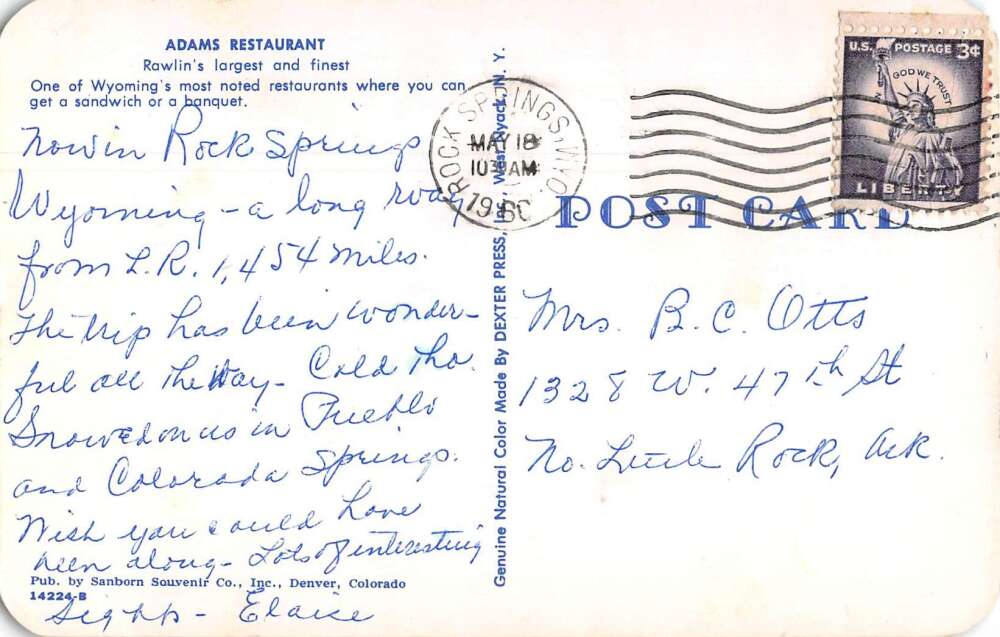 ADAMS RESTAURANT
Rawlin's largest and finest
One of Wyoming's most noted restaurants where you can
get a sandwich or a banquet.
Now in Rock Springs
Wyoming - a long way
from L.R. 1,454 miles.
The trip has been wonder-
ful all the way - Cold tho.
Snowed on us in Pueblo
and Colorada Springs.
Wish you could have
been along - Lots of interesting
Pub. by Sanborn Souvenir Co., Inc., Denver, Colorado
14224-B
sights -
Genuine Natural Color Made By DEXTER PRESS, Inc., West Nyack, N. Y.
ROCK SPRINGS, WYO.
MAY 18
10 30 AM
1960
U.S. POSTAGE 3¢
IN GOD WE TRUST
LIBERTY
POST CARD
Mrs. B. C. Otts
1328 W. 47th St
No. Little Rock, Ark.